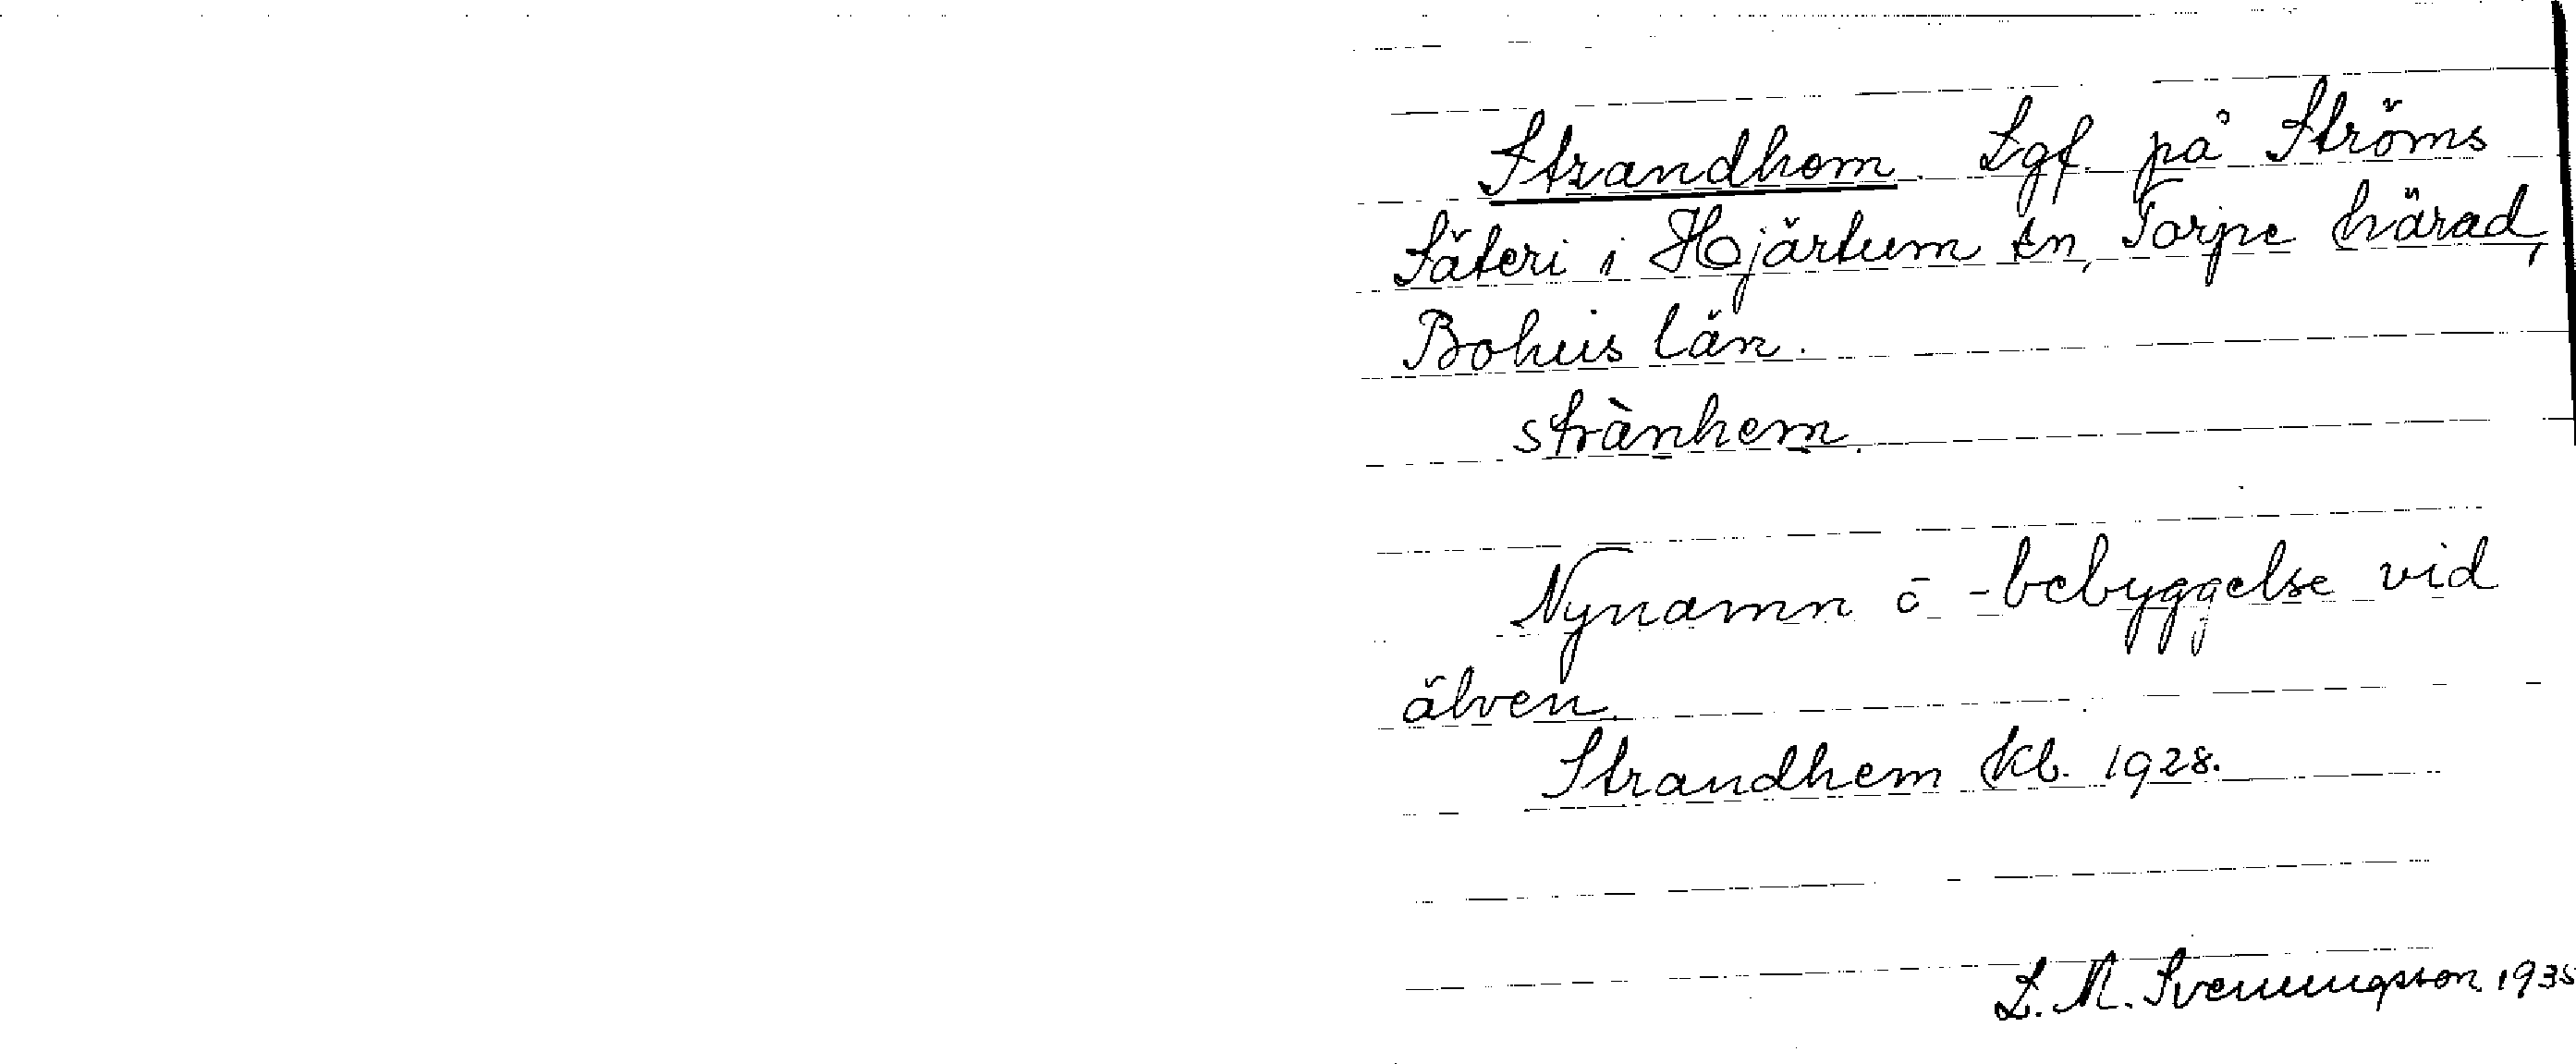 Strandhem. Lgf. på Ströms
Säteri i Hjärtum sn, Torpe härad,
Bohus län.
strànhem.
Nynamn o -bebyggelse vid
älven.
Strandhem Kb. 1928.
L. M. Svenungsson 1935